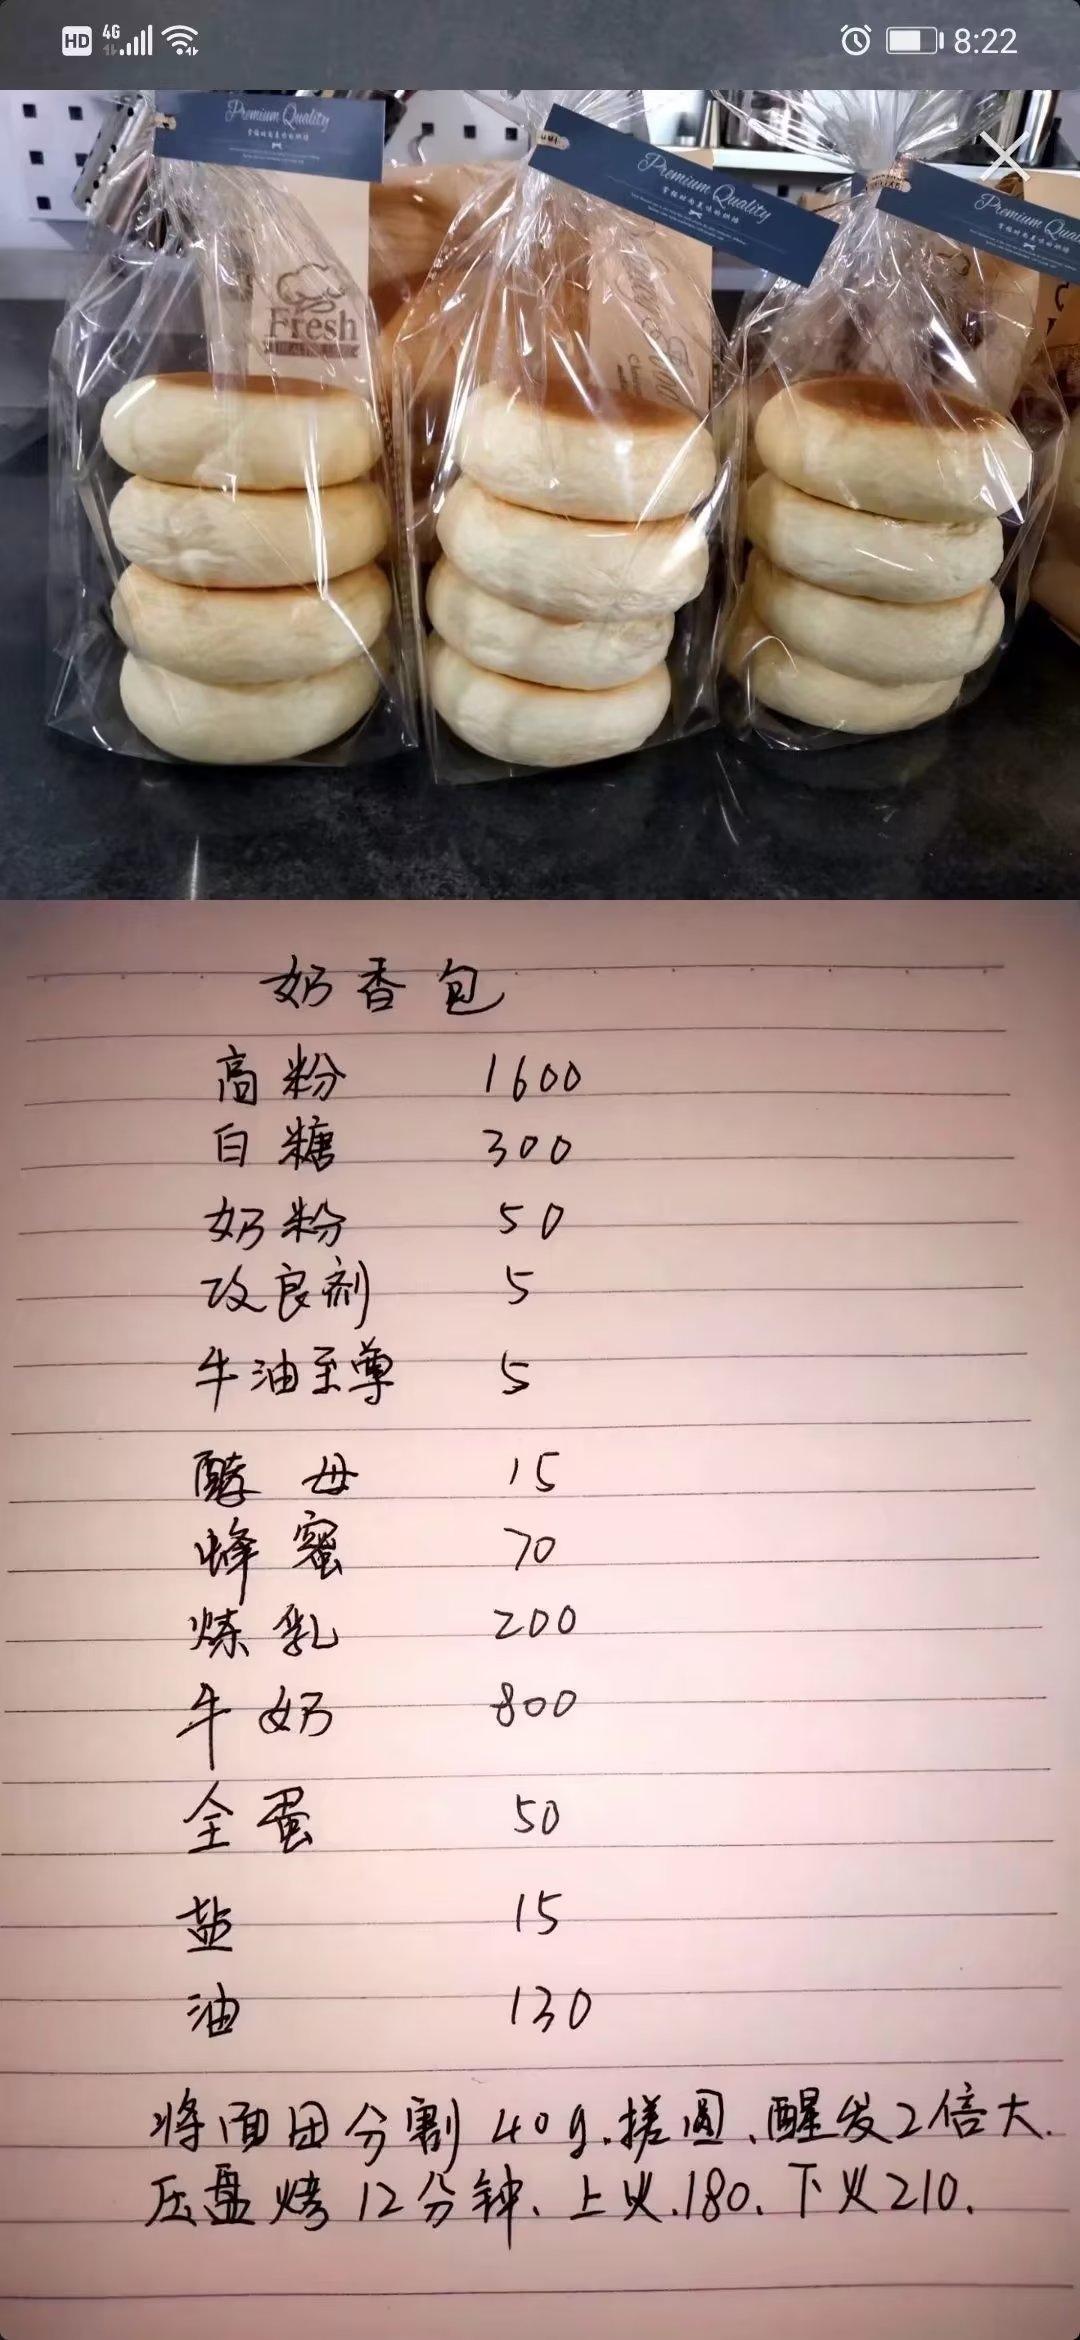 HD 4G 8:22
Premium Quality
Premium Quality
Premium Qua
Fresh
奶香包
高粉 1600
白糖 300
奶粉 50
改良剂 5
牛油至尊 5
酵母 15
蜂蜜 70
炼乳 200
牛奶 800
全蛋 50
盐 15
油 130
将面团分割40g.搓圆、醒发2倍大.
压盘烤12分钟、上火.180、下火210.